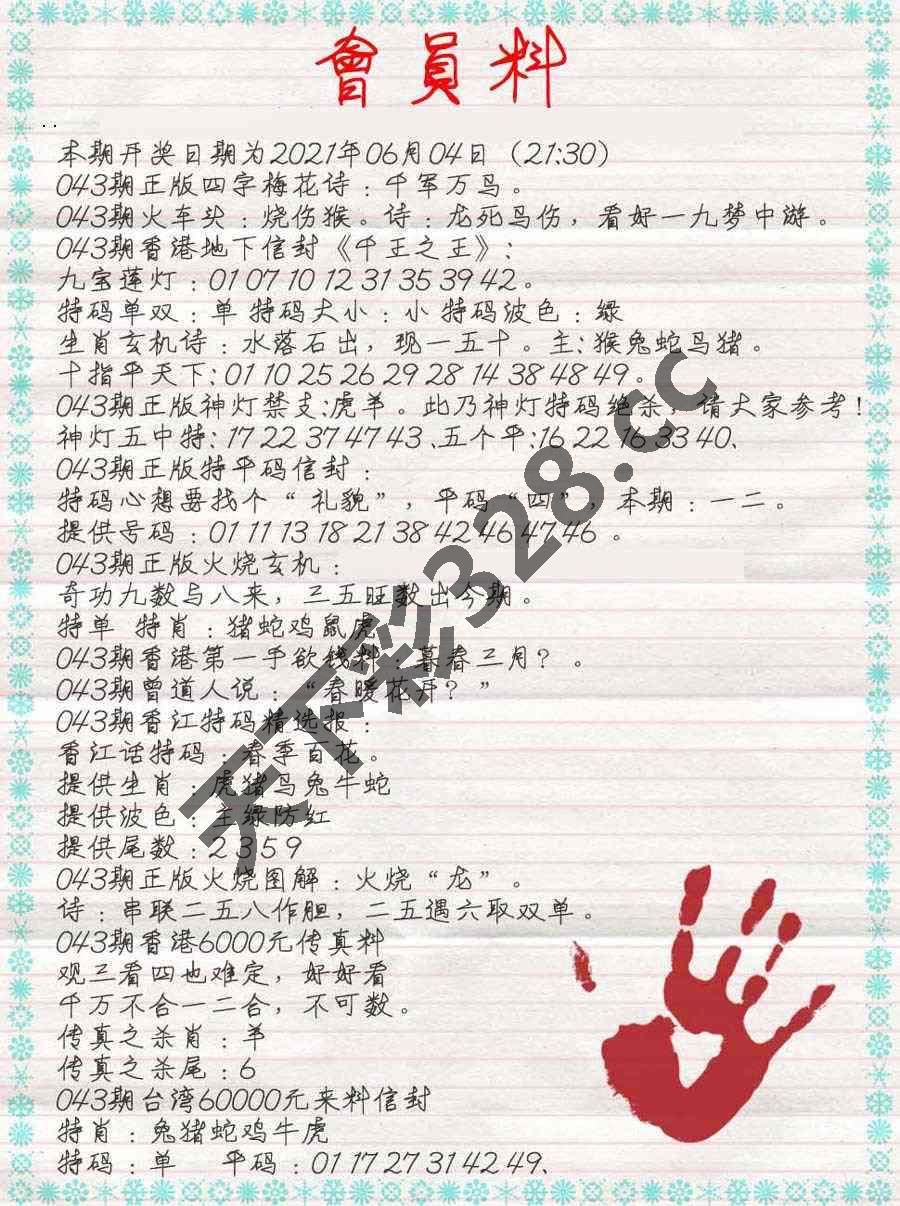 會員料
..
本期开奖日期为2021年06月04日（21:30）
043期正版四字梅花诗：千军万马。
043期火车头：烧伤猴。诗：龙死马伤，看好一九梦中游。
043期香港地下信封《千王之王》：
九宝莲灯：01 07 10 12 31 35 39 42。
特码单双：单 特码大小：小 特码波色：绿
生肖玄机诗：水落石出，现一五十。主：猴兔蛇马猪。
十指平天下：01 10 25 26 29 28 14 38 48 49。
043期正版神灯禁支:虎羊。此乃神灯特码绝杀，请大家参考！
神灯五中特：17 22 37 47 43、五个平:16 22 16 33 40、
043期正版特平码信封：
特码心想要找个“礼貌”，平码“四”，本期：一二。
提供号码：01 11 13 18 21 38 42 46 47 46 。
043期正版火烧玄机：
奇功九数与八来，三五旺数出今期。
特单 特肖：猪蛇鸡鼠虎
043期香港第一手欲钱料：暮春三月？。
043期曾道人说：“春暖花开？”
043期香江特码精选报：
香江话特码：春季百花。
提供生肖：虎猪马兔牛蛇
提供波色：主绿防红
提供尾数：2 3 5 9
043期正版火烧图解：火烧“龙”。
诗：串联二五八作胆，二五遇六取双单。
043期香港6000元传真料
观三看四也难定，好好看
千万不合一二合，不可数。
传真之杀肖：羊
传真之杀尾：6
043期台湾60000元来料信封
特肖：兔猪蛇鸡牛虎
特码：单 平码：01 17 27 31 42 49、
天下彩328.cc